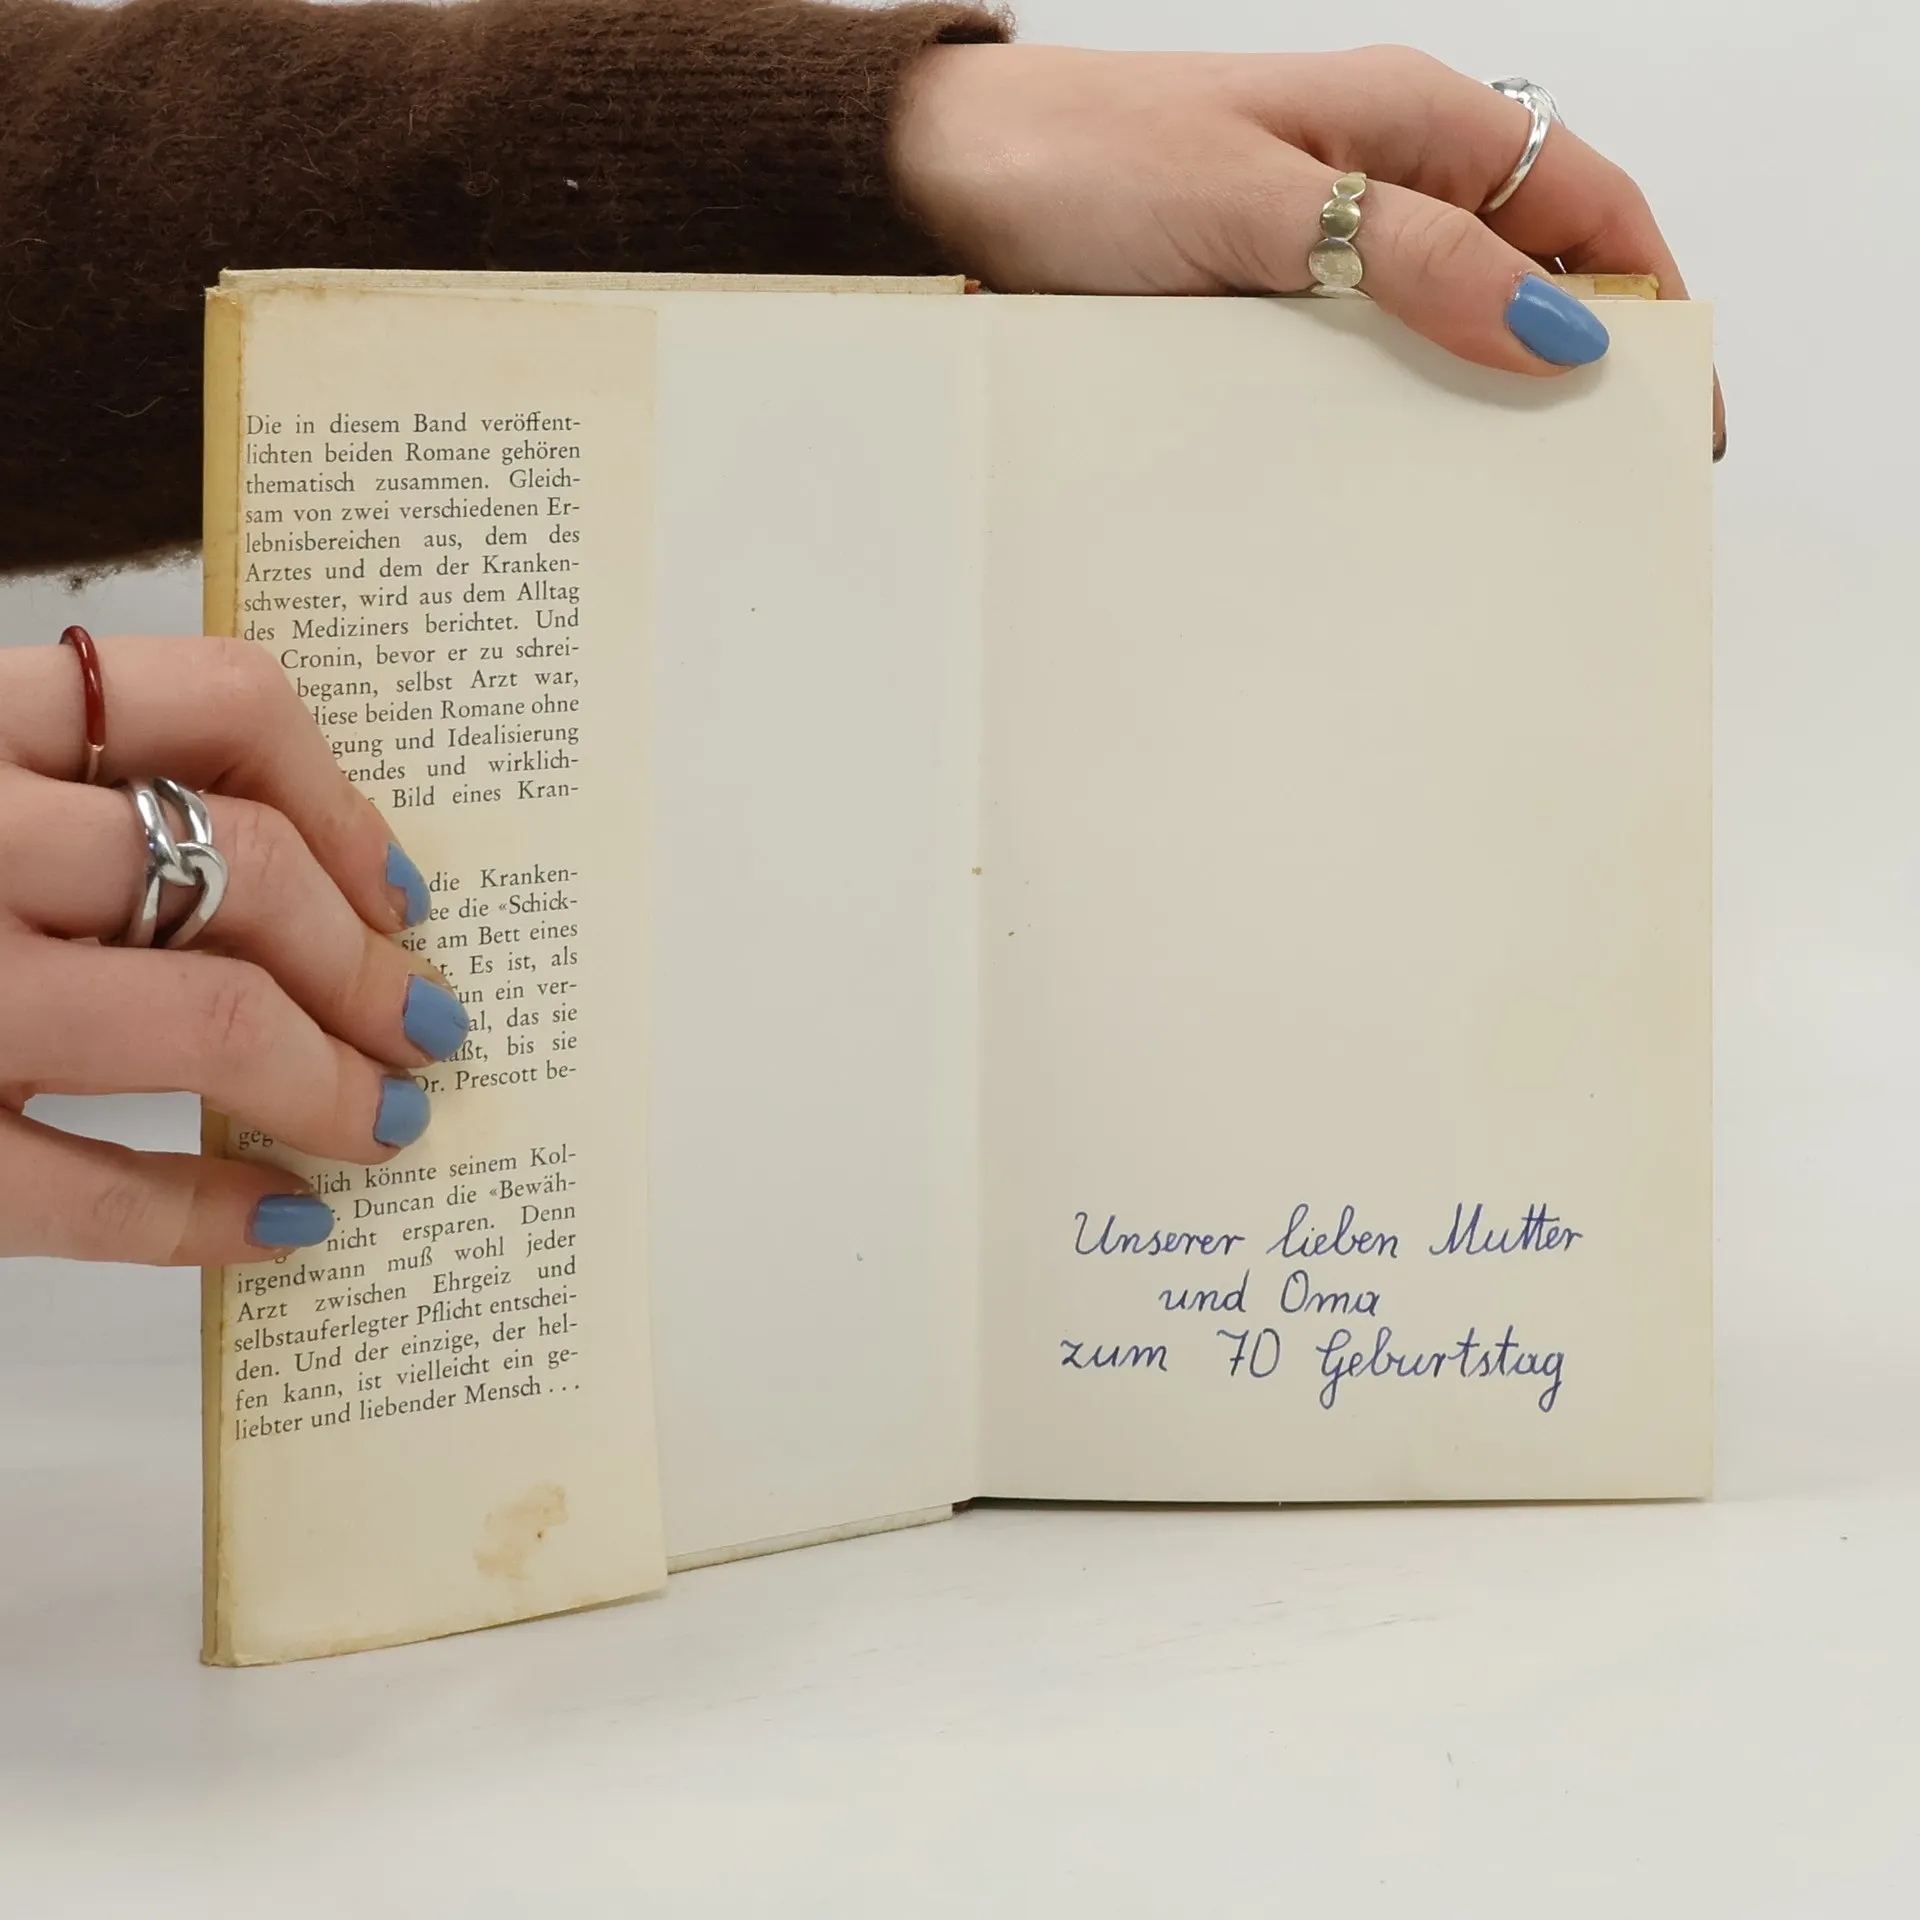 Die in diesem Band veröffent-
lichten beiden Romane gehören
thematisch zusammen. Gleich-
sam von zwei verschiedenen Er-
lebnisbereichen aus, dem des
Arztes und dem der Kranken-
schwester, wird aus dem Alltag
des Mediziners berichtet. Und
Cronin, bevor er zu schrei-
begann, selbst Arzt war,
diese beiden Romane ohne
und Idealisierung
und wirklich-
Bild eines Kran-
die Kranken-
die «Schick-
sie am Bett eines
Es ist, als
ein ver-
das sie
bis sie
Dr. Prescott be-
könnte seinem Kol-
Duncan die «Bewäh-
nicht ersparen. Denn
irgendwann muß wohl jeder
Arzt zwischen Ehrgeiz und
selbstauferlegter Pflicht entschei-
den. Und der einzige, der hel-
fen kann, ist vielleicht ein ge-
liebter und liebender Mensch . . .
Unserer lieben Mutter
und Oma
zum 70 Geburtstag